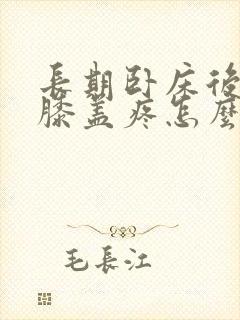 長期卧床後
膝盖疼怎麼
毛長江